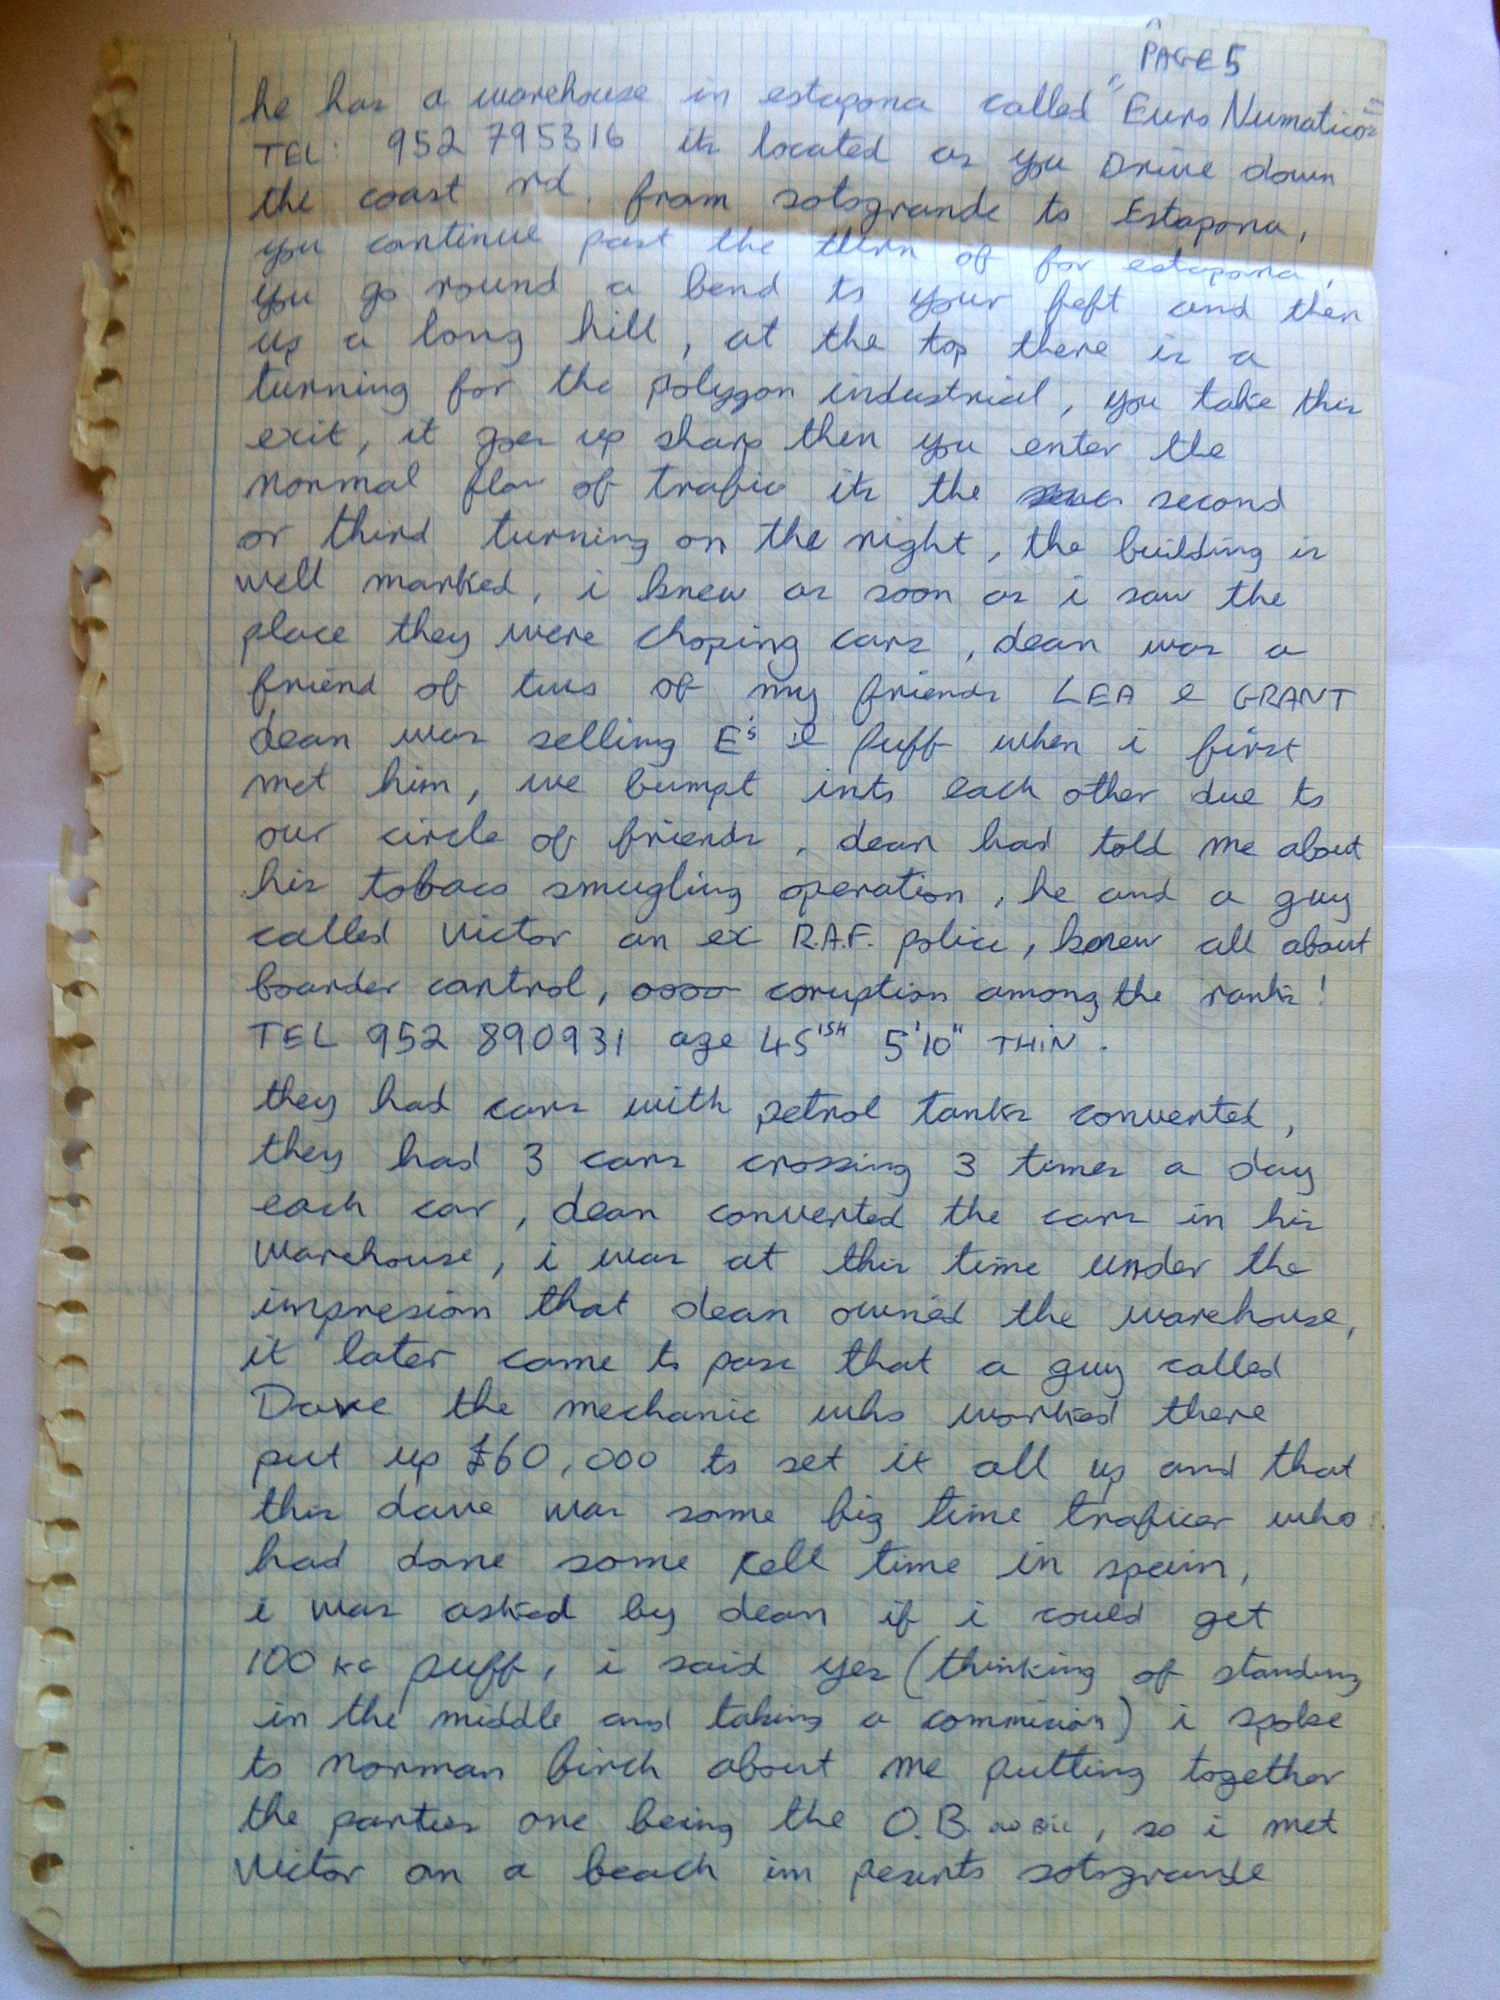 PAGE 5
he has a warehouse in estapona called "Euro Numaticos"
TEL: 952 795316 its located as you Drive down
the coast rd. from sotogrande to Estapona,
you continue past the turn of for estapona,
you go round a bend to your left and then
up a long hill, at the top there is a
turning for the polygon industrial, you take this
exit, it goes up sharp then you enter the
normal flow of trafic its the second
or third turning on the right, the building is
well marked, i knew as soon as i saw the
place they were choping cars, dean was a
friend of two of my friends LEA & GRANT
dean was selling E's & puff when i first
met him, we bumpt into each other due to
our circle of friends, dean had told me about
his tobaco smugling operation, he and a guy
called Victor an ex R.A.F. police, knew all about
boarder control, coruption among the ranks!
TEL 952 890931 age 45'ISH 5'10" THIN.
they had cars with petrol tanks converted,
they had 3 cars crossing 3 times a day
each car, dean converted the cars in his
warehouse, i was at this time under the
impresion that dean owned the warehouse,
it later came to pass that a guy called
Dave the mechanic who worked there
put up £60,000 to set it all up and that
this dave was some big time traficer who
had done some cell time in spain,
i was asked by dean if i could get
100 KG puff, i said yes (thinking of standing
in the middle and taking a commision) i spoke
to norman birch about me putting together
the parties one being the O.B. , so i met
Victor on a beach in sotogrande